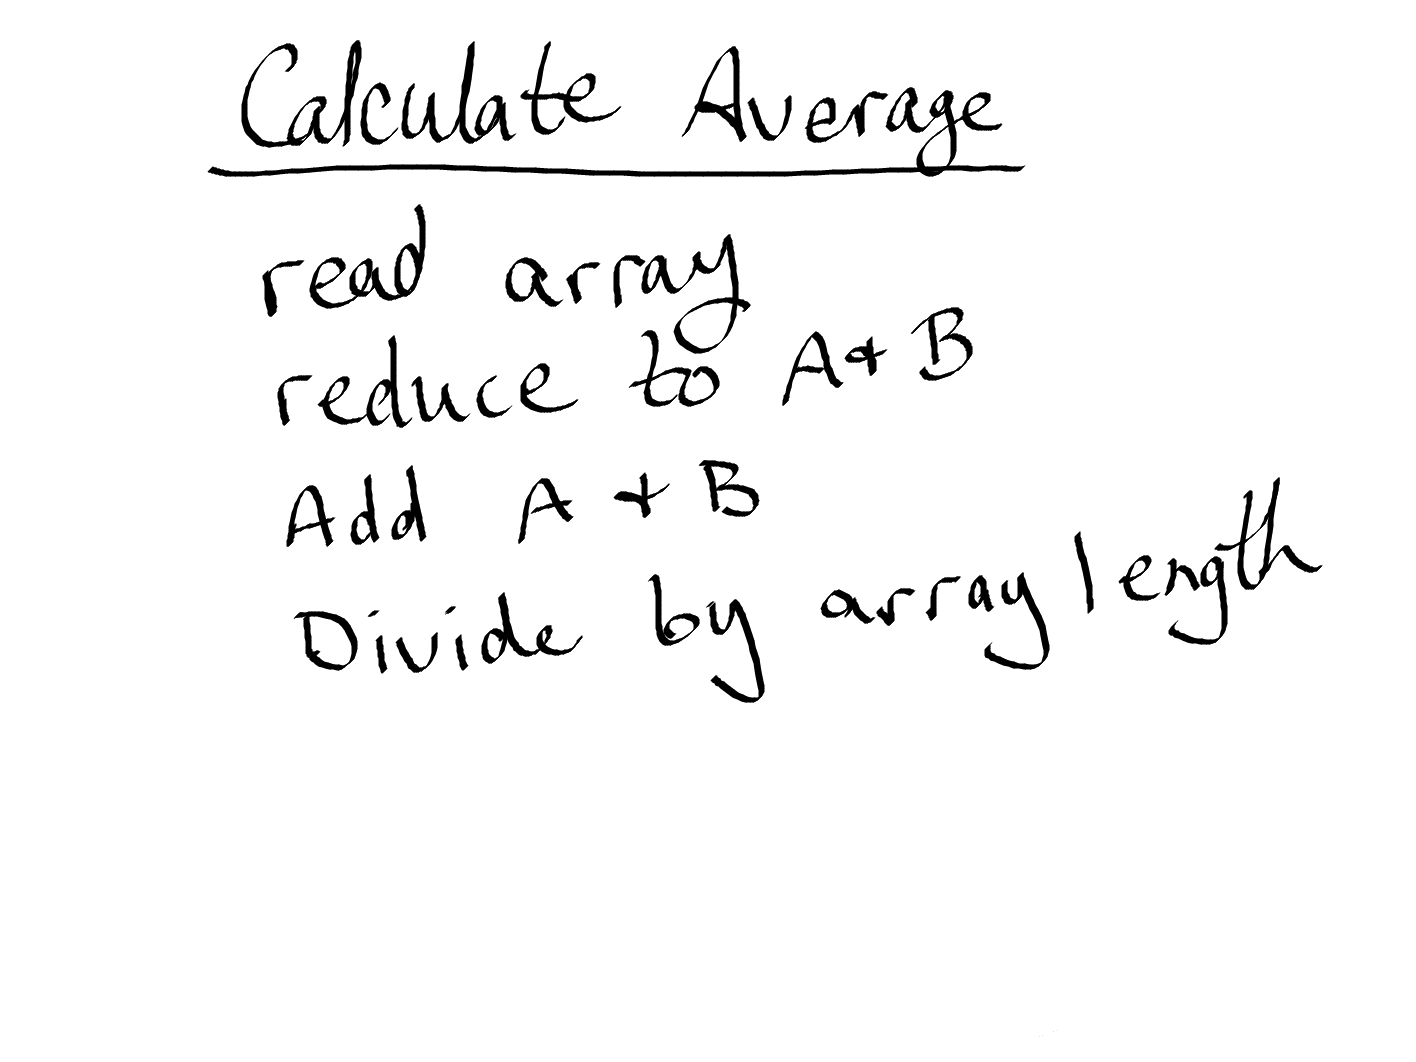 Calculate Average
read array
reduce to A + B
Add A + B
Divide by array length